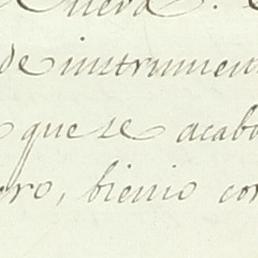 de instrumen
que se acabo
ro, bienio con